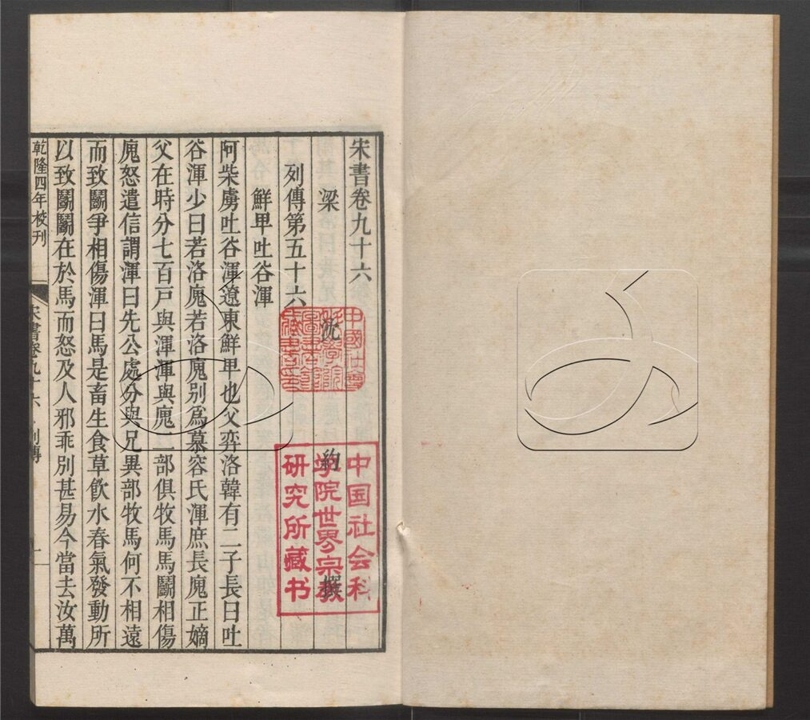 宋書卷九十六
梁 沈 約 撰
列傳第五十六
鮮卑吐谷渾
阿柴虜吐谷渾遼東鮮卑也父弈洛韓有二子長曰吐
谷渾少曰若洛廆若洛廆別爲慕容氏渾庶長廆正嫡
父在時分七百戶與渾渾與廆二部俱牧馬馬鬭相傷
廆怒遣信謂渾曰先公處分與兄異部牧馬何不相遠
而致鬭爭相傷渾曰馬是畜生食草飲水春氣發動所
以致鬭鬭在於馬而怒及人邪乖別甚易今當去汝萬
乾隆四年校刊
宋書卷九十六 列傳
一
中國社會
科學院
圖書館
藏書
中国社会科
学院世界宗教
研究所藏书